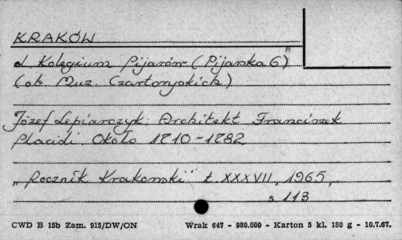 KRAKÓW
d. Kolegium Pijarów (Pijarska 6)"
(ob. Muz. Czartoryskich)
Józef Lepiarczyk: Architekt Franciszek
Placidi. Około 1710-1782
„Rocznik Krakowski" t. XXXVII, 1965,
s 113
CWD B 15b Zam. 915/DW/ON Wrak 647 - 980.000 - Karton 5 kl. 180 g - 10.7.67.